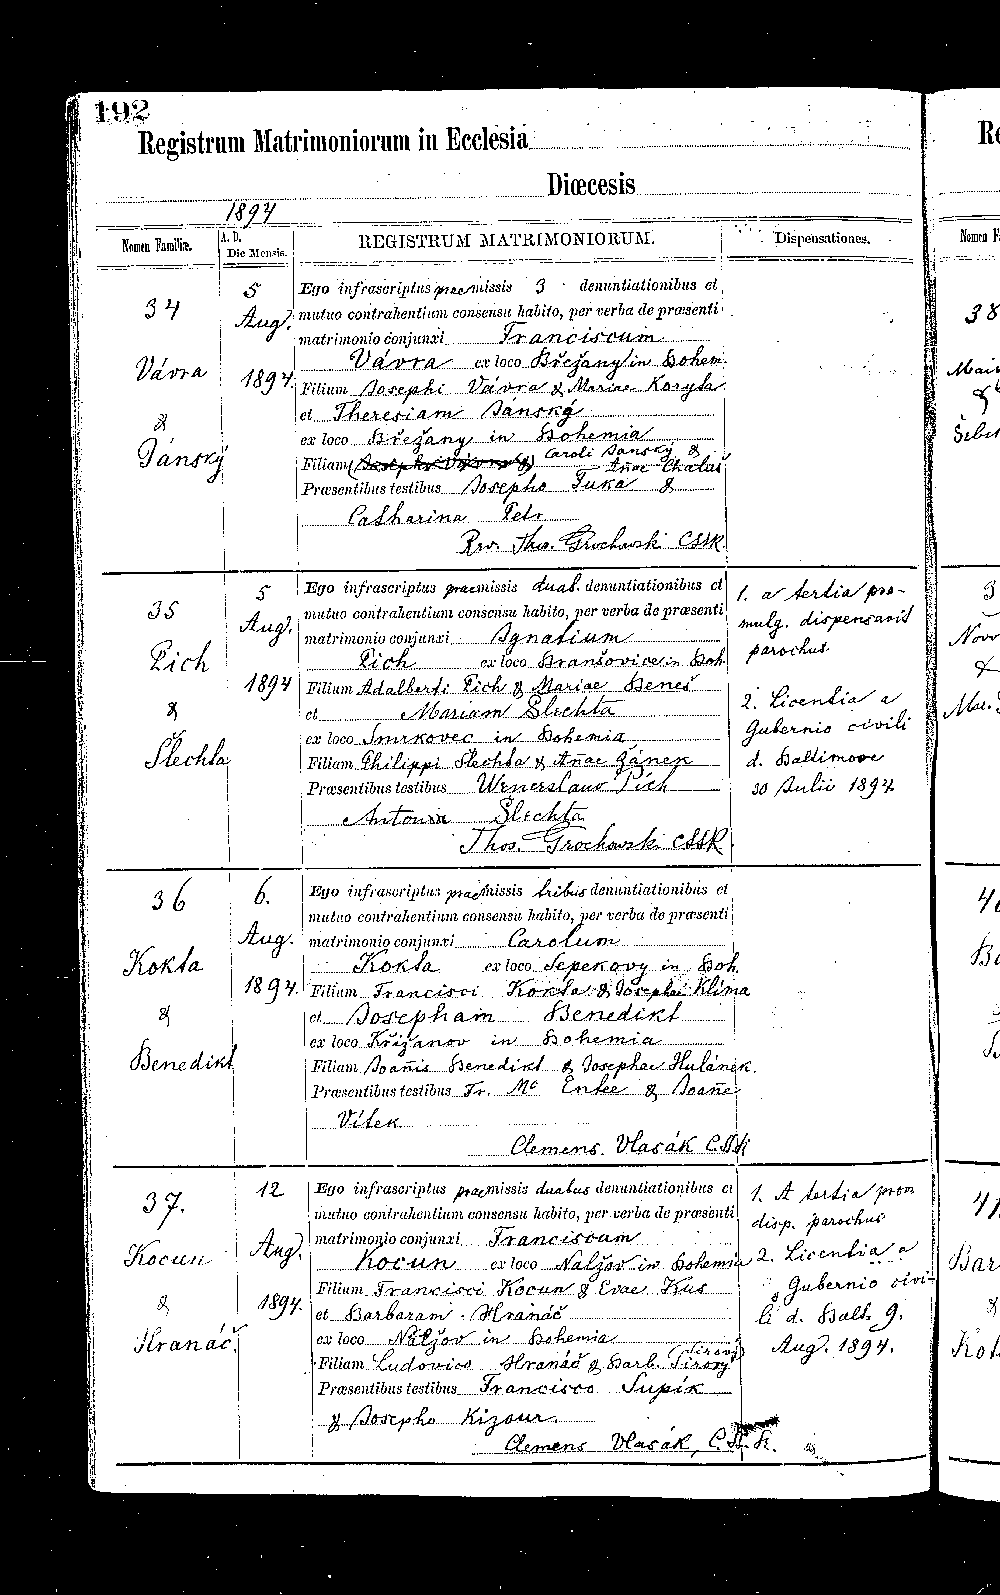 192
Registrum Matrimoniorum in Ecclesia
Diœcesis
1894
Nomen Familiæ.
A. D.
Die Mensis.
REGISTRUM MATRIMONIORUM.
Dispensationes.
34
Vávra
&
Jánský
5
Aug.
1894.
Ego infrascriptus praemissis 3 denuntiationibus et
mutuo contrahentium consensu habito, per verba de præsenti
matrimonio conjunxi Franciscum
Vávra ex loco Břežany in Bohem.
Filium Josephi Vávra & Mariae Koryta
et Theresiam Jánský
ex loco Břežany in Bohemia
Caroli Jánský &
Filiam (Josephi Vávra &) Añae Chalaš
Præsentibus testibus Josepho Tuka &
Catharina Petr
Rev. Thos. Grochowski CSSR
35
Pich
&
Šlechta
5
Aug.
1894
Ego infrascriptus praemissis duab. denuntiationibus et
mutuo contrahentium consensu habito, per verba de præsenti
matrimonio conjunxi Ignatium
Pich ex loco Branšovice in Boh
Filium Adalberti Pich & Mariae Beneš
et Mariam Šlechta
ex loco Smrkovec in Bohemia
Filiam Philippi Šlechta & Añae Zánek
Præsentibus testibus Wenceslaus Pich
Antonia Šlechta
Thos. Grochowski CSSR
1. a tertia pro-
mulg. dispensavit
parochus
2. Licentia a
Gubernio civili
d. Baltimore
30 Julii 1894
36
Kokta
&
Benedikt
6.
Aug.
1894.
Ego infrascriptus praemissis tribus denuntiationibus et
mutuo contrahentium consensu habito, per verba de præsenti
matrimonio conjunxi Carolum
Kokta ex loco Sepekovy in Boh.
Filium Francisci Kokta & Josephae Klíma
et Josepham Benedikt
ex loco Križanov in Bohemia
Filiam Joañis Benedikt & Josephae Hulánek.
Præsentibus testibus Fr. Mc Entee & Joañe
Vítek
Clemens Vlasák C.SS.R
37.
Kocun
&
Hranáč.
12
Aug.
1894.
Ego infrascriptus praemissis duabus denuntiationibus et
mutuo contrahentium consensu habito, per verba de præsenti
matrimonio conjunxi Franciscum
Kocun ex loco Nalžov in Bohemia
Filium Francisci Kocun & Evae Kus
et Barbaram Hranáč
ex loco Nalžov in Bohemia
Filiam Ludovico Hranáč & Barb. Širový
(Širový)
Præsentibus testibus Francisco Supík
& Josepho Kizour.
Clemens Vlasák, C.SS.R.
1. A tertia prom
disp. parochus
2. Licentia a
Gubernio civi-
li d. Balt. 9.
Aug. 1894.
Re
Nomen F
38
Mai
&
Šebe
3
Novo
&
4
41
Bar
&
Kot